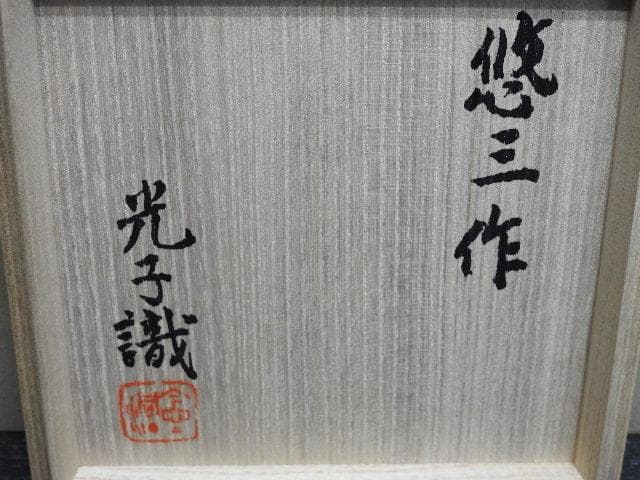 悠三作
光子識